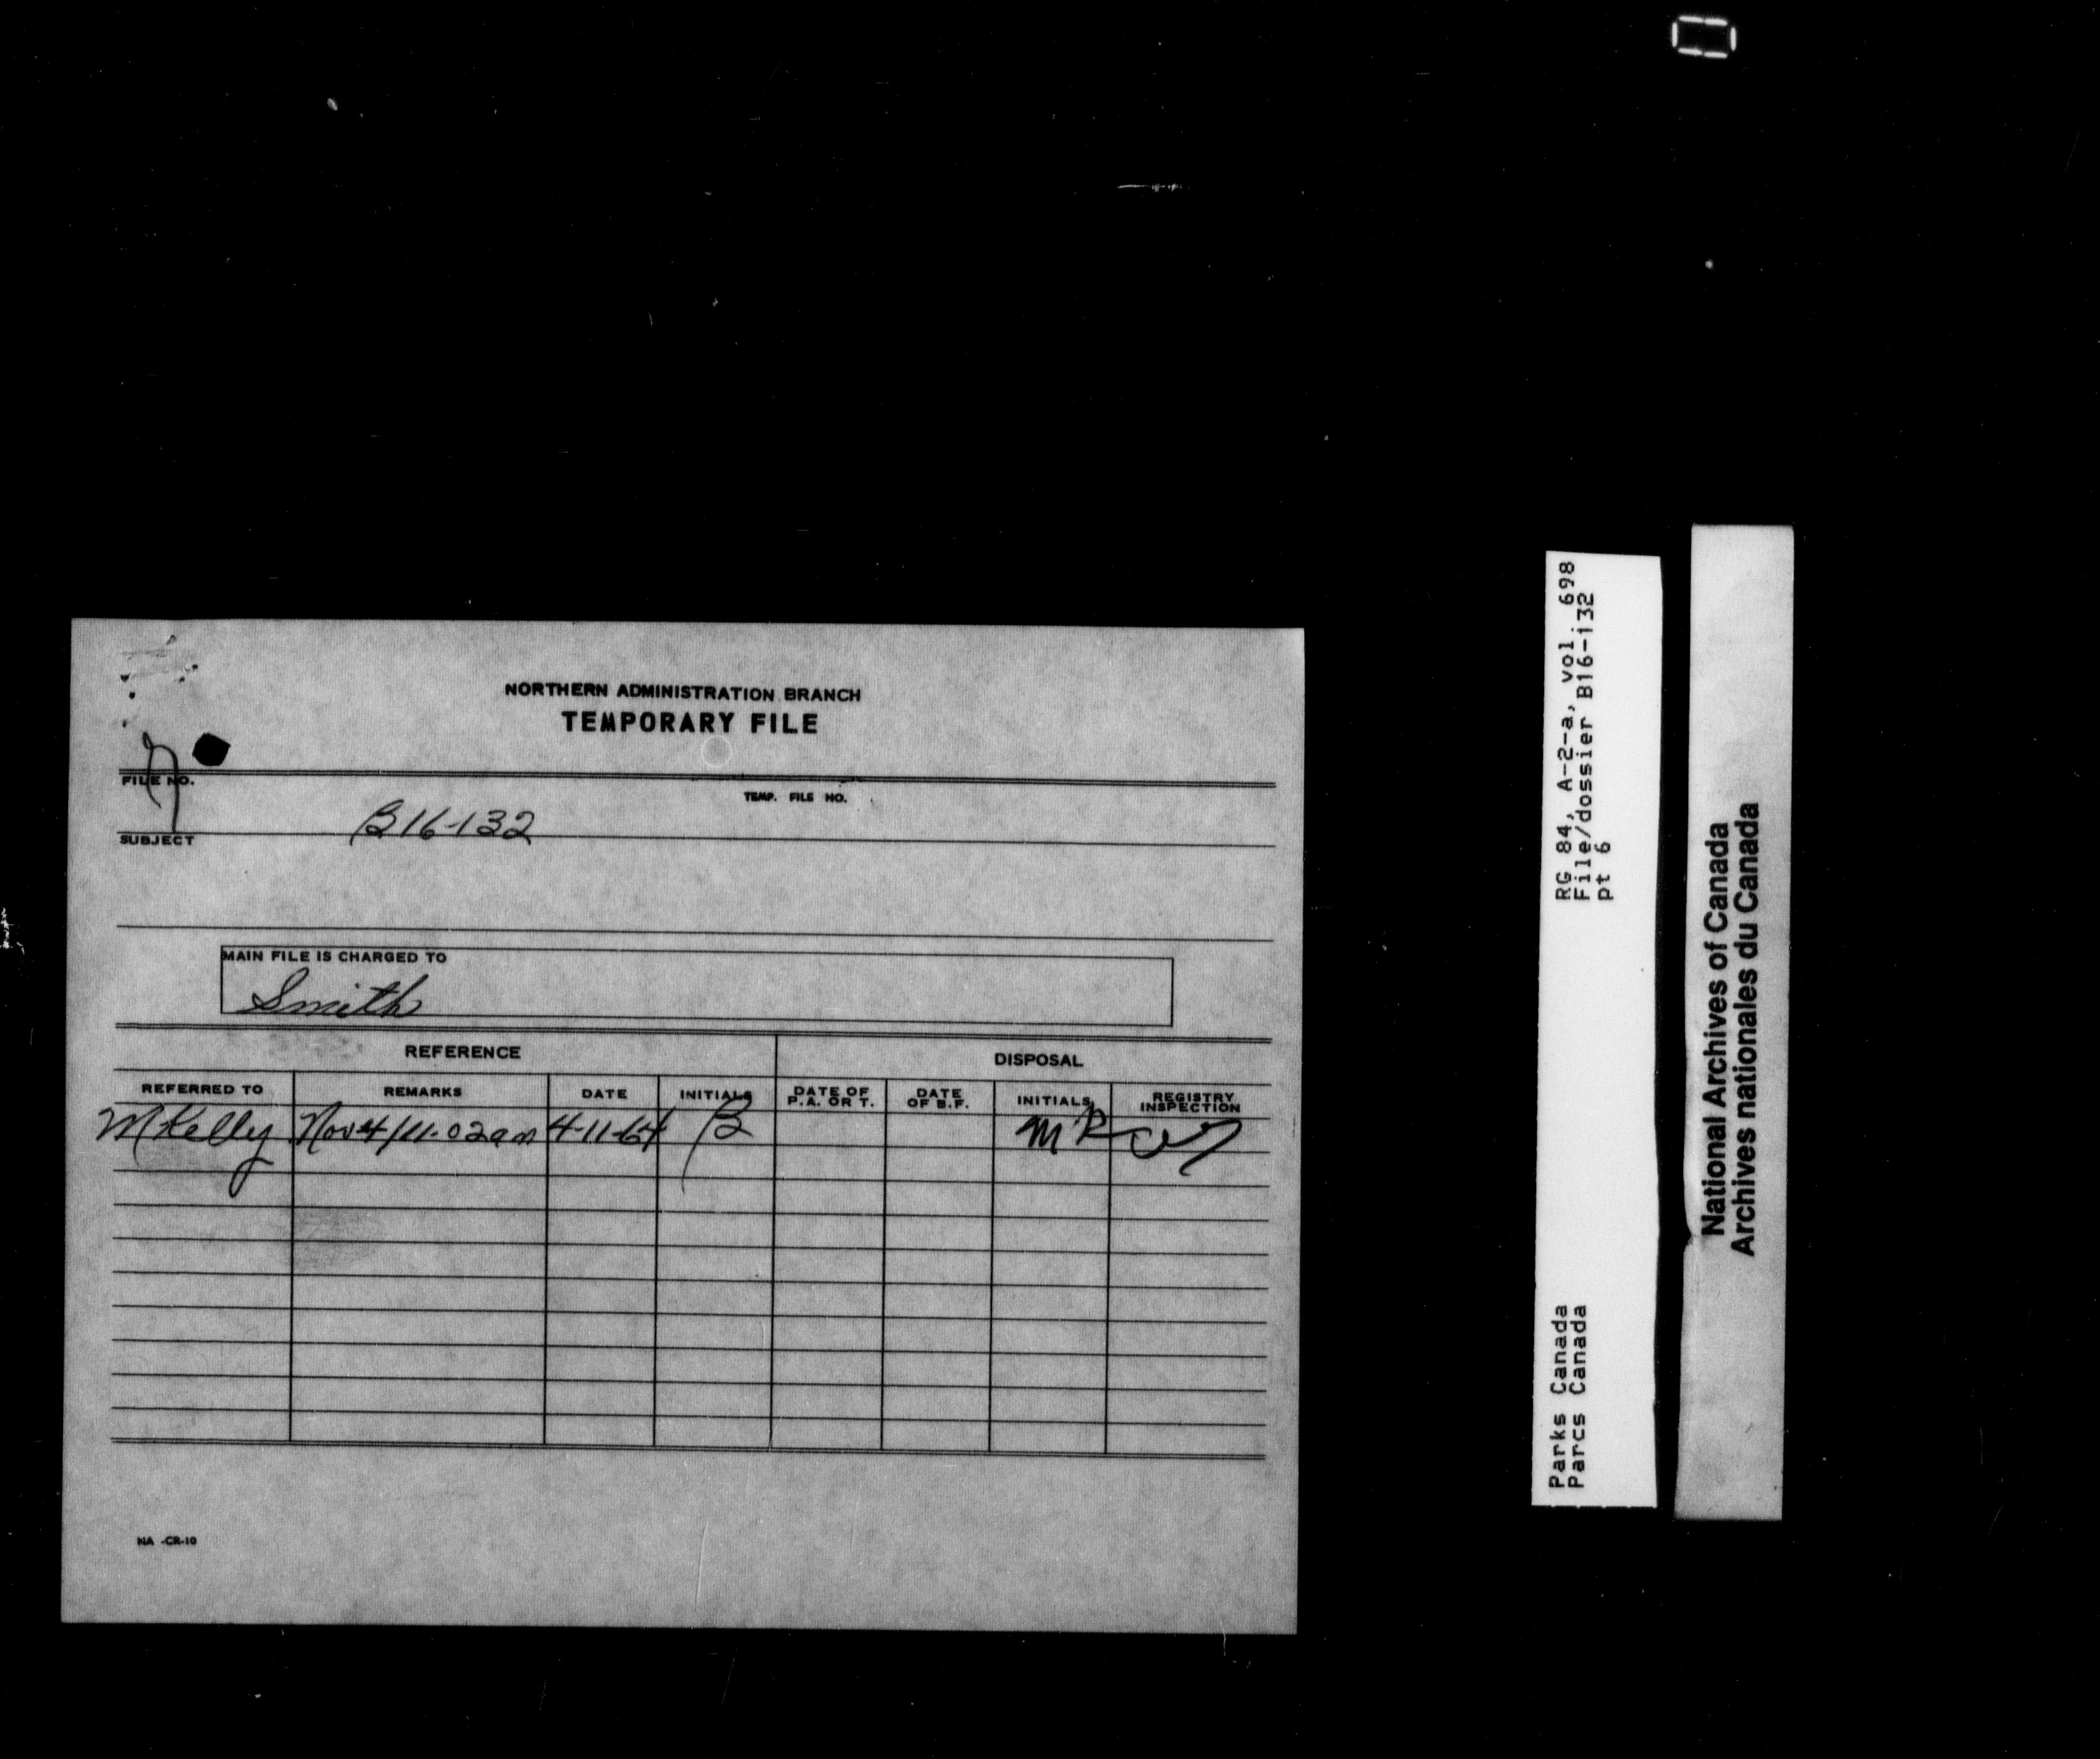 NORTHERN ADMINISTRATION BRANCH
TEMPORARY FILE
FILE NO.
TEMP. FILE NO.
B16-132
SUBJECT
MAIN FILE IS CHARGED TO
Smith
REFERENCE
DISPOSAL
REFERRED TO REMARKS DATE INITIALS DATE OF P.A. OR T. DATE OF B.F. INITIALS REGISTRY INSPECTION
MKelly Nov 4/11.02am 4-11-64 B MK
NA -CR-10
RG 84, A-2-a, vol. 698
File/dossier B16-132
pt 6
Parks Canada
Parcs Canada
National Archives of Canada
Archives nationales du Canada